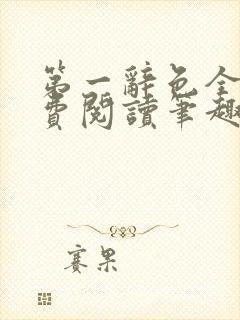 第一辭色全
費閱讀筆趣
賽果